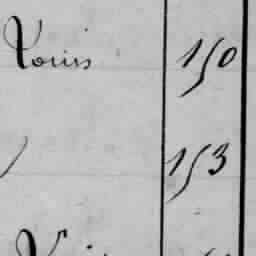 Louis 150
153